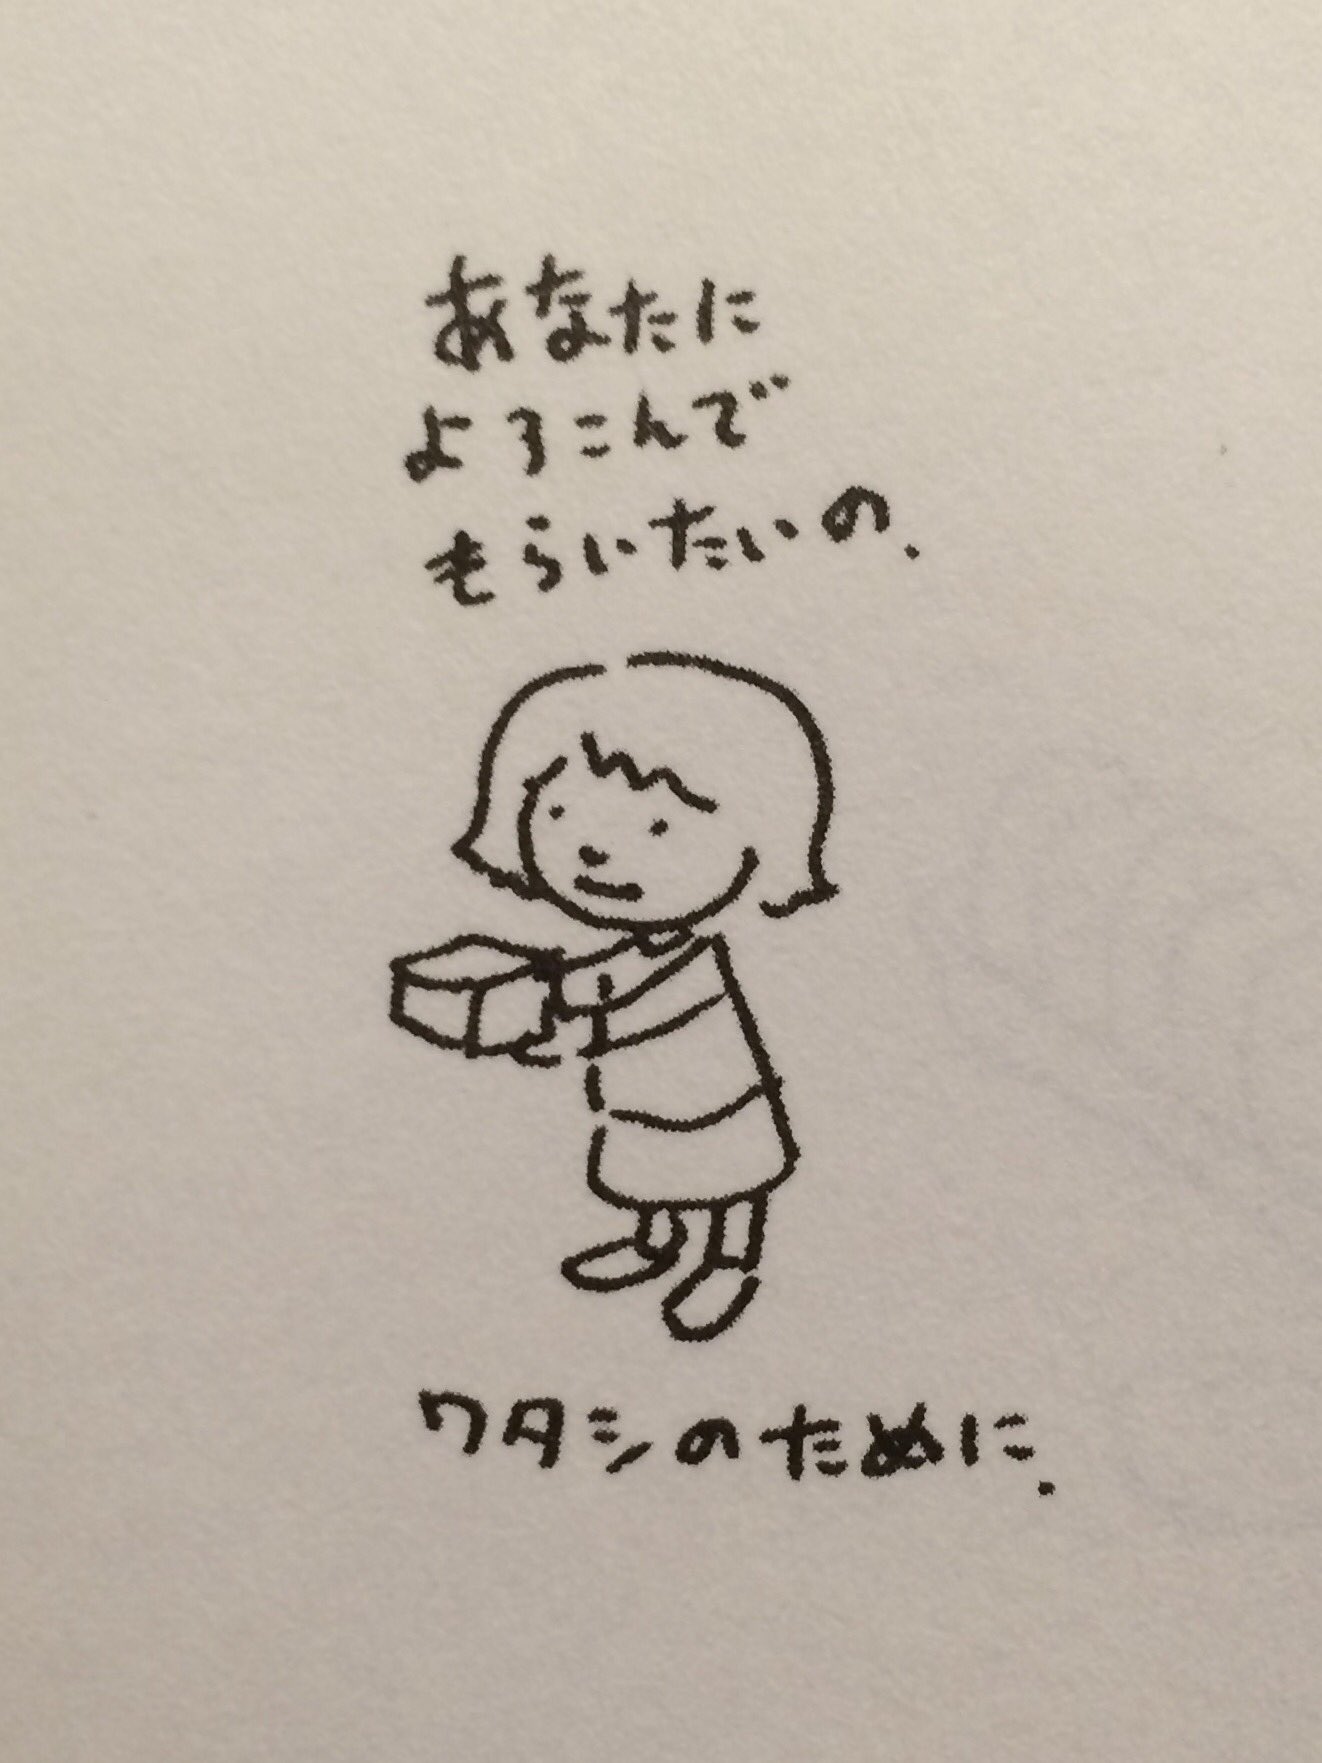 あなたに
よろこんで
もらいたいの.
ワタシのために.